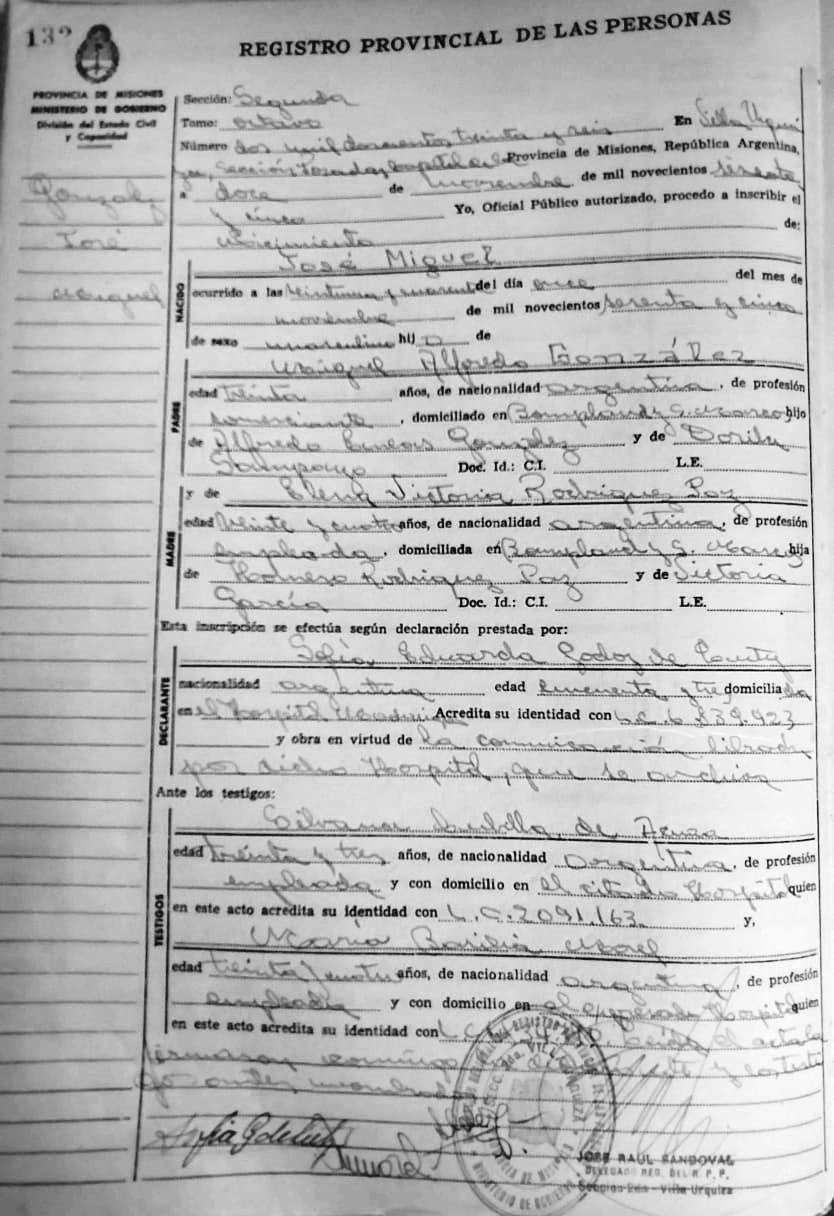 132
REGISTRO PROVINCIAL DE LAS PERSONAS
PROVINCIA DE MISIONES
MINISTERIO DE GOBIERNO
División del Estado Civil
y Capacidad
Gonzalez
José
Miguel
Sección: Segunda
Tomo: octavo En Villa Urqui
Número dos mil doscientos treinta y seis
za, Sección Posadas, capital de la Provincia de Misiones, República Argentina,
a doce de noviembre de mil novecientos sesenta
y cinco Yo, Oficial Público autorizado, procedo a inscribir el
nacimiento de:
NACIDO
José Miguel
ocurrido a las veintiuna y cuarenta del día once del mes de
noviembre de mil novecientos sesenta y cinco
de sexo masculino hijo de
PADRE
Miguel Alfredo González
edad treinta años, de nacionalidad argentina, de profesión
comerciante, domiciliado en Bompland y S. Marco hijo
de Alfredo González y de Dorila
Sampayo Doc. Id.: C.I. L.E.
MADRE
y de Elena Victoria Rodriguez Paz
edad veinte y cuatro años, de nacionalidad argentina, de profesión
empleada, domiciliada en Bompland y S. Marco hija
de Homero Rodriguez Paz y de Victoria
García Doc. Id.: C.I. L.E.
Esta inscripción se efectúa según declaración prestada por:
DECLARANTE
Sofía Eduarda Godoy de
nacionalidad argentina edad cincuenta y tres domiciliada
en el Hospital Acredita su identidad con L.C. 6.839.923
y obra en virtud de la comunicación librada
por dicho Hospital, que se archiva
Ante los testigos:
TESTIGOS
Silvana de
edad treinta y tres años, de nacionalidad argentina, de profesión
empleada y con domicilio en el citado Hospital quien
en este acto acredita su identidad con L.C. 2.091.163 y,
María Basilia Morel
edad treinta y cuatro años, de nacionalidad argentina, de profesión
empleada y con domicilio en el expresado Hospital quien
en este acto acredita su identidad con L.C. Leída el acta la
firmaron conmigo y los testi
gos antes nombrados
JOSE RAUL SANDOVAL
DELEGADO REG. DEL R. P. P.
Sección 2da - Villa Urquiza